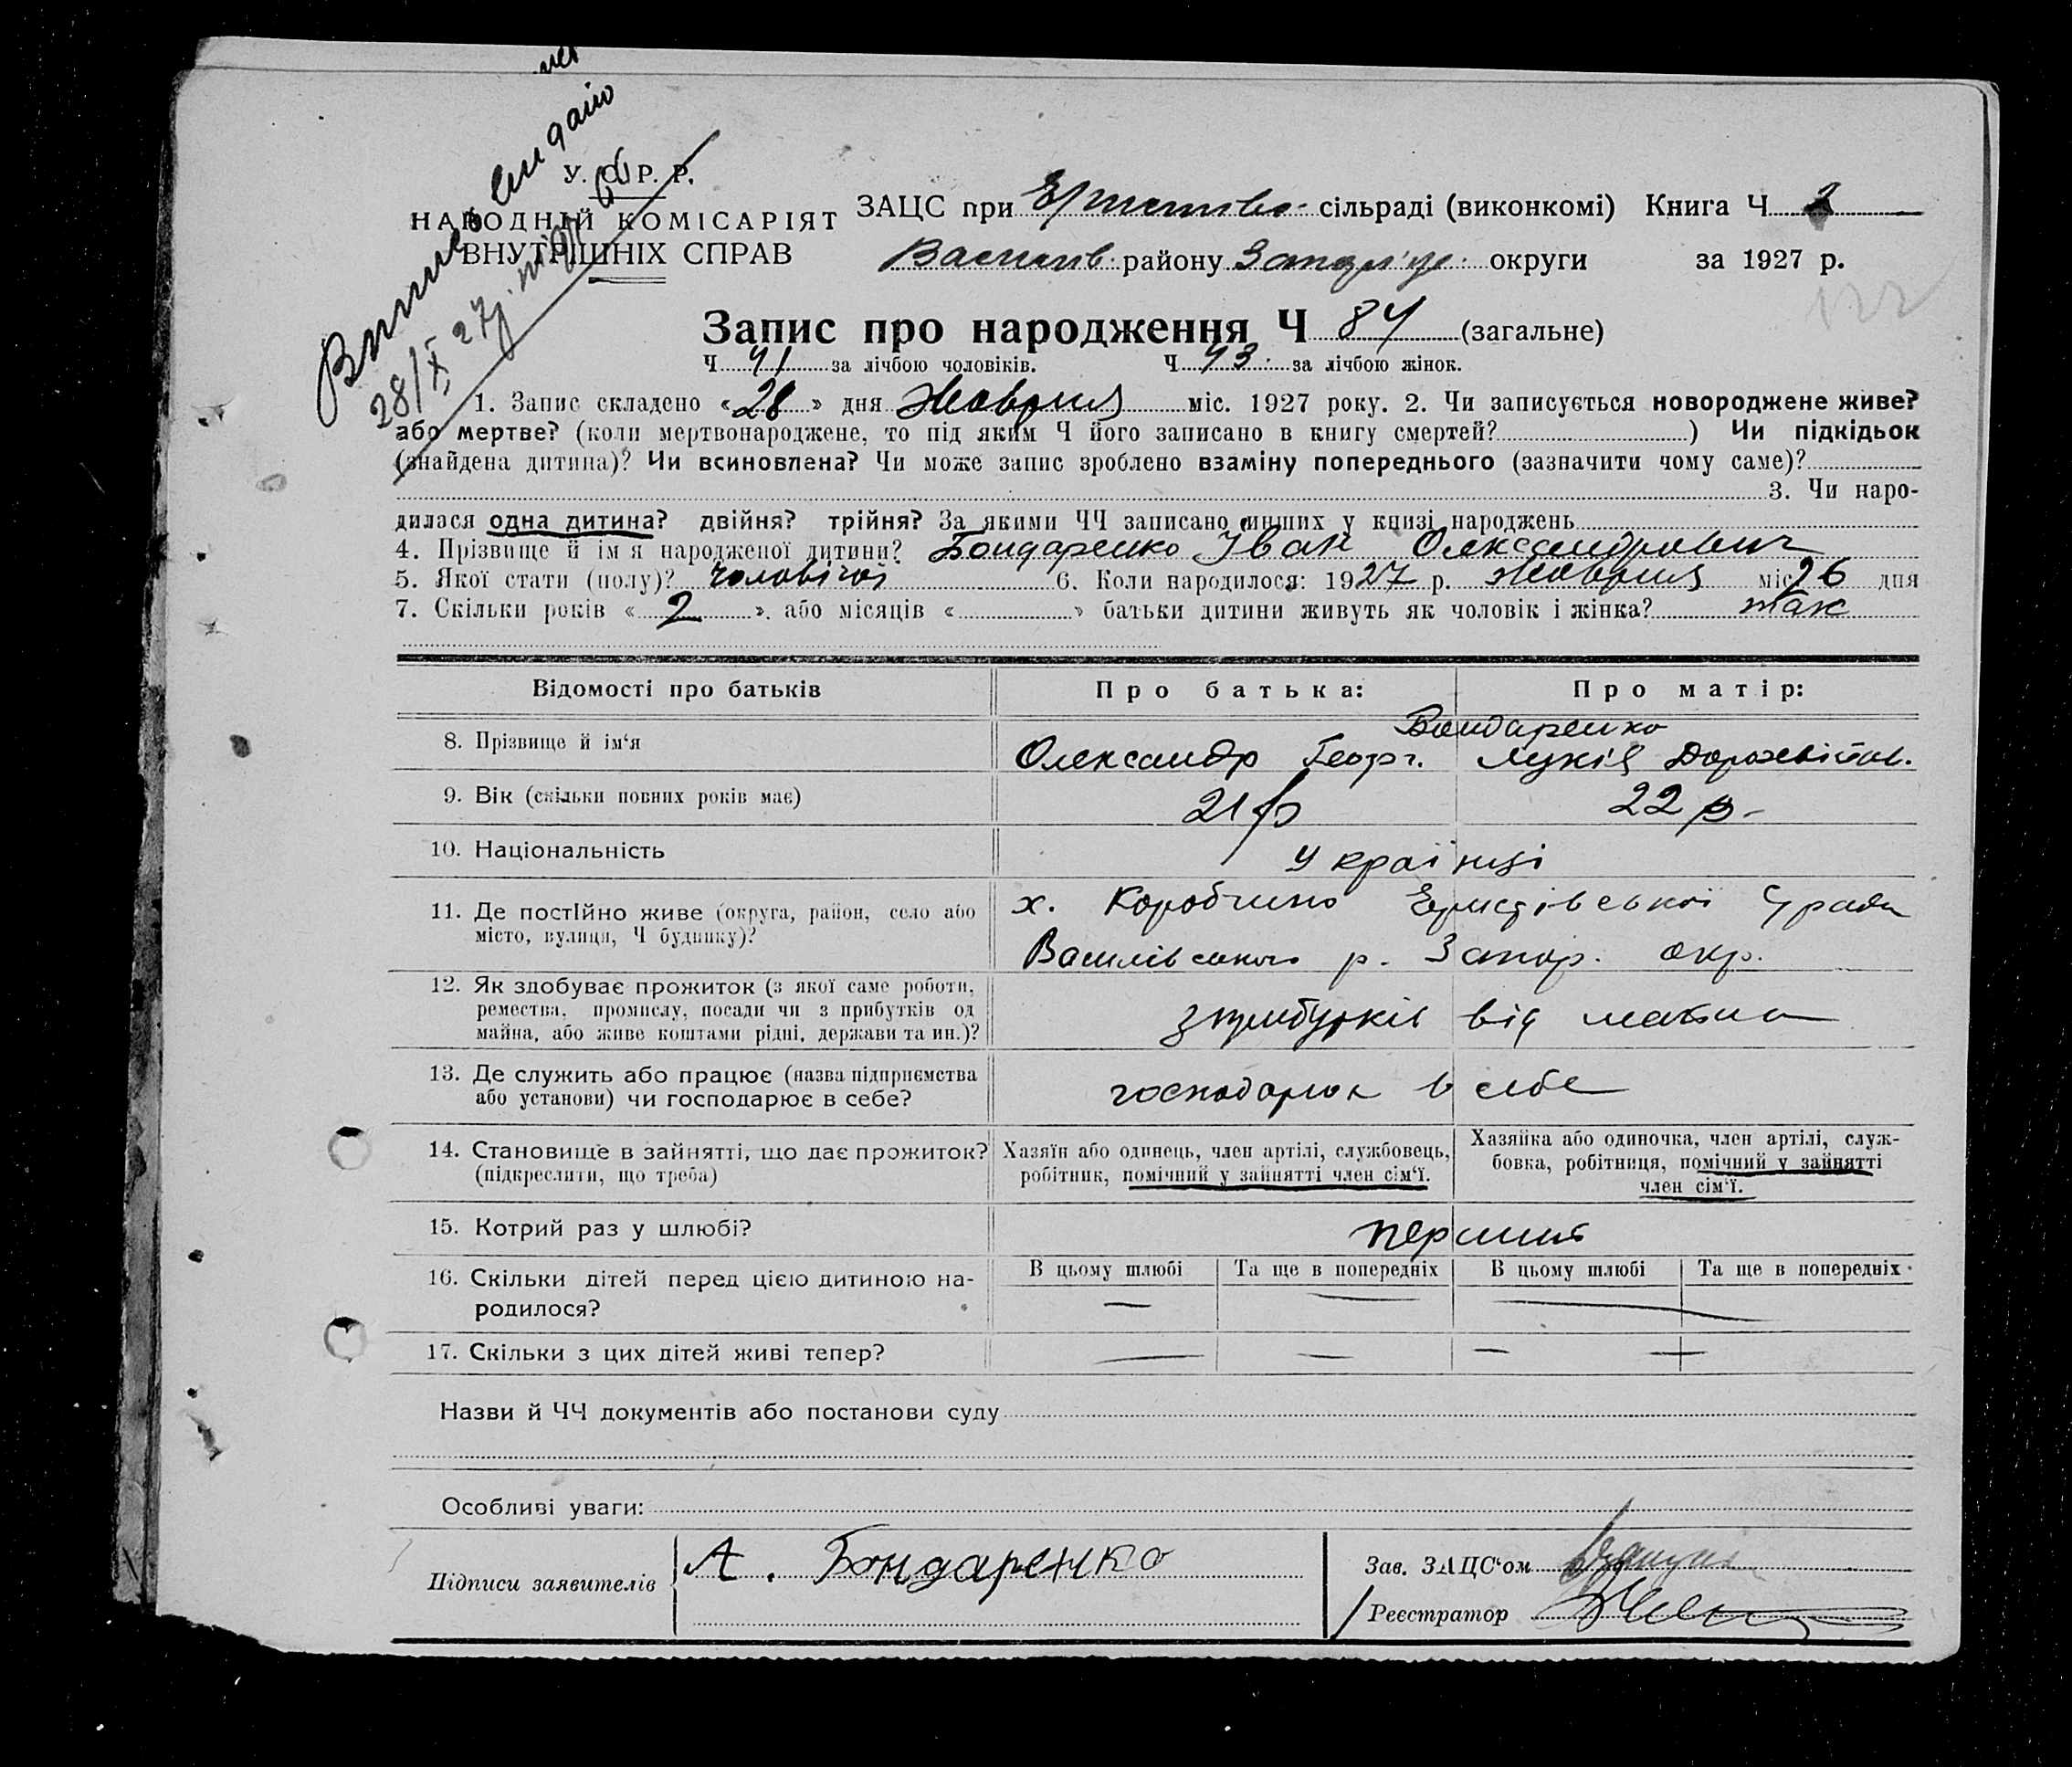 Виписъ видано
28/X 27 р. підп
У. С. Р. Р.
НАРОДНІЙ КОМІСАРІЯТ
ВНУТРІШНІХ СПРАВ
ЗАЦС при сільраді (виконкомі) Книга Ч
Василів. району Запоріз. округи за 1927 р.
122
Запис про народження Ч 84 (загальне)
Ч 41 за лічбою чоловіків. Ч 43. за лічбою жінок.
1. Запис складено «28» дня Жовтня міс. 1927 року. 2. Чи записується новороджене живе?
або мертве? (коли мертвонароджене, то під яким Ч його записано в книгу смертей? ) Чи підкідьок
(знайдена дитина)? Чи всиновлена? Чи може запис зроблено взаміну попереднього (зазначити чому саме)?
3. Чи наро-
дилася одна дитина? двійня? трійня? За якими ЧЧ записано инших у книзі народжень
4. Прізвище й ім'я народженої дитини? Бондаренко Іван Олександрович
5. Якої стати (полу)? чоловічої 6. Коли народилося: 1927 р. жовтня міс 26 дня
7. Скільки років «2». або місяців « » батьки дитини живуть як чоловік і жінка? так
Відомості про батьків Про батька: Про матір:
Бондаренко
8. Прізвище й ім'я Олександр Георг. Лукія
9. Вік (скільки повних років має) 21 р 22 р.
10. Національність Українці
11. Де постійно живе (округа, район, село або місто, вулиця, Ч будинку)? х. Коробчино Еристівської С/ради
Василівського р. Запор. окр.
12. Як здобуває прожиток (з якої саме роботи,
ремества, промислу, посади чи з прибутків од
майна, або живе коштами рідні, держави та ин.)? з прибутків від майна
13. Де служить або працює (назва підприємства
або установи) чи господарює в себе? господарює в себе
14. Становище в зайнятті, що дає прожиток?
(підкреслити, що треба)
Хазяїн або одинець, член артілі, службовець,
робітник, помічний у зайнятті член сім'ї.
Хазяйка або одиночка, член артілі, служ-
бовка, робітниця, помічний у зайнятті
член сім'ї.
15. Котрий раз у шлюбі? перший
16. Скільки дітей перед цією дитиною на-
родилося?
В цьому шлюбі Та ще в попередніх В цьому шлюбі Та ще в попередніх
— — —
17. Скільки з цих дітей живі тепер? — — — —
Назви й ЧЧ документів або постанови суду
Особливі уваги:
Підписи заявителів А. Бондаренко
Зав. ЗАЦС'ом
Реєстратор